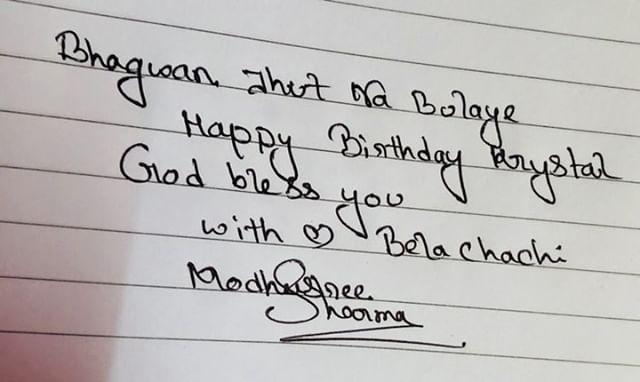 Bhagwan Jhut Na Bolaye
Happy Birthday Krystal
God bless you
with ♡ Bela chachi
Madhugnee
Sharma